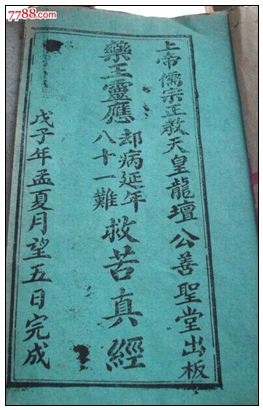 7788.com
上帝儒宗正教天皇龍壇公善聖堂出板
藥王靈應
却病延年
八十一難
救苦真經
戊子年孟夏月望五日完成